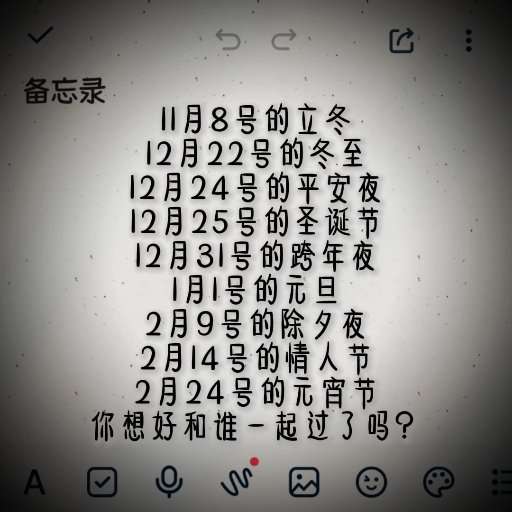 备忘录
11月8号的立冬
12月22号的冬至
12月24号的平安夜
12月25号的圣诞节
12月31号的跨年夜
1月1号的元旦
2月9号的除夕夜
2月14号的情人节
2月24号的元宵节
你想好和谁一起过了吗?
A